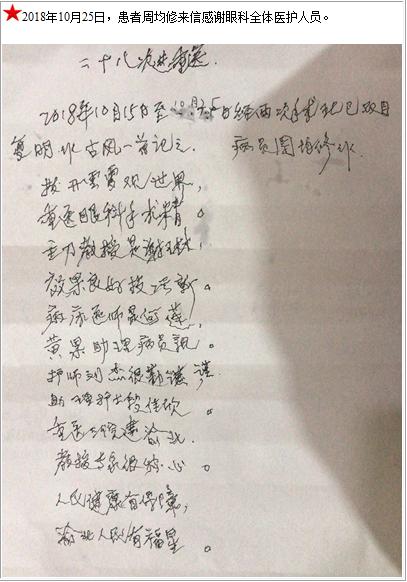 ★2018年10月25日，患者周均修来信感谢眼科全体医护人员。
二十八次进重医.
2018年10月15日至10月25日经两次手术我已双目
复明 以古风一首记之 病员周均修
拨开云雾观世界,
重医眼科手术精。
主刀教授是谢
效果良好技巧新。
病床医师是何莲,
黄果助理病员
护师刘杰很勤谨,
助理护士段佳欣。
重医三院建渝北,
教授专家很热心。
人民健康有保障,
渝北人民有福星。